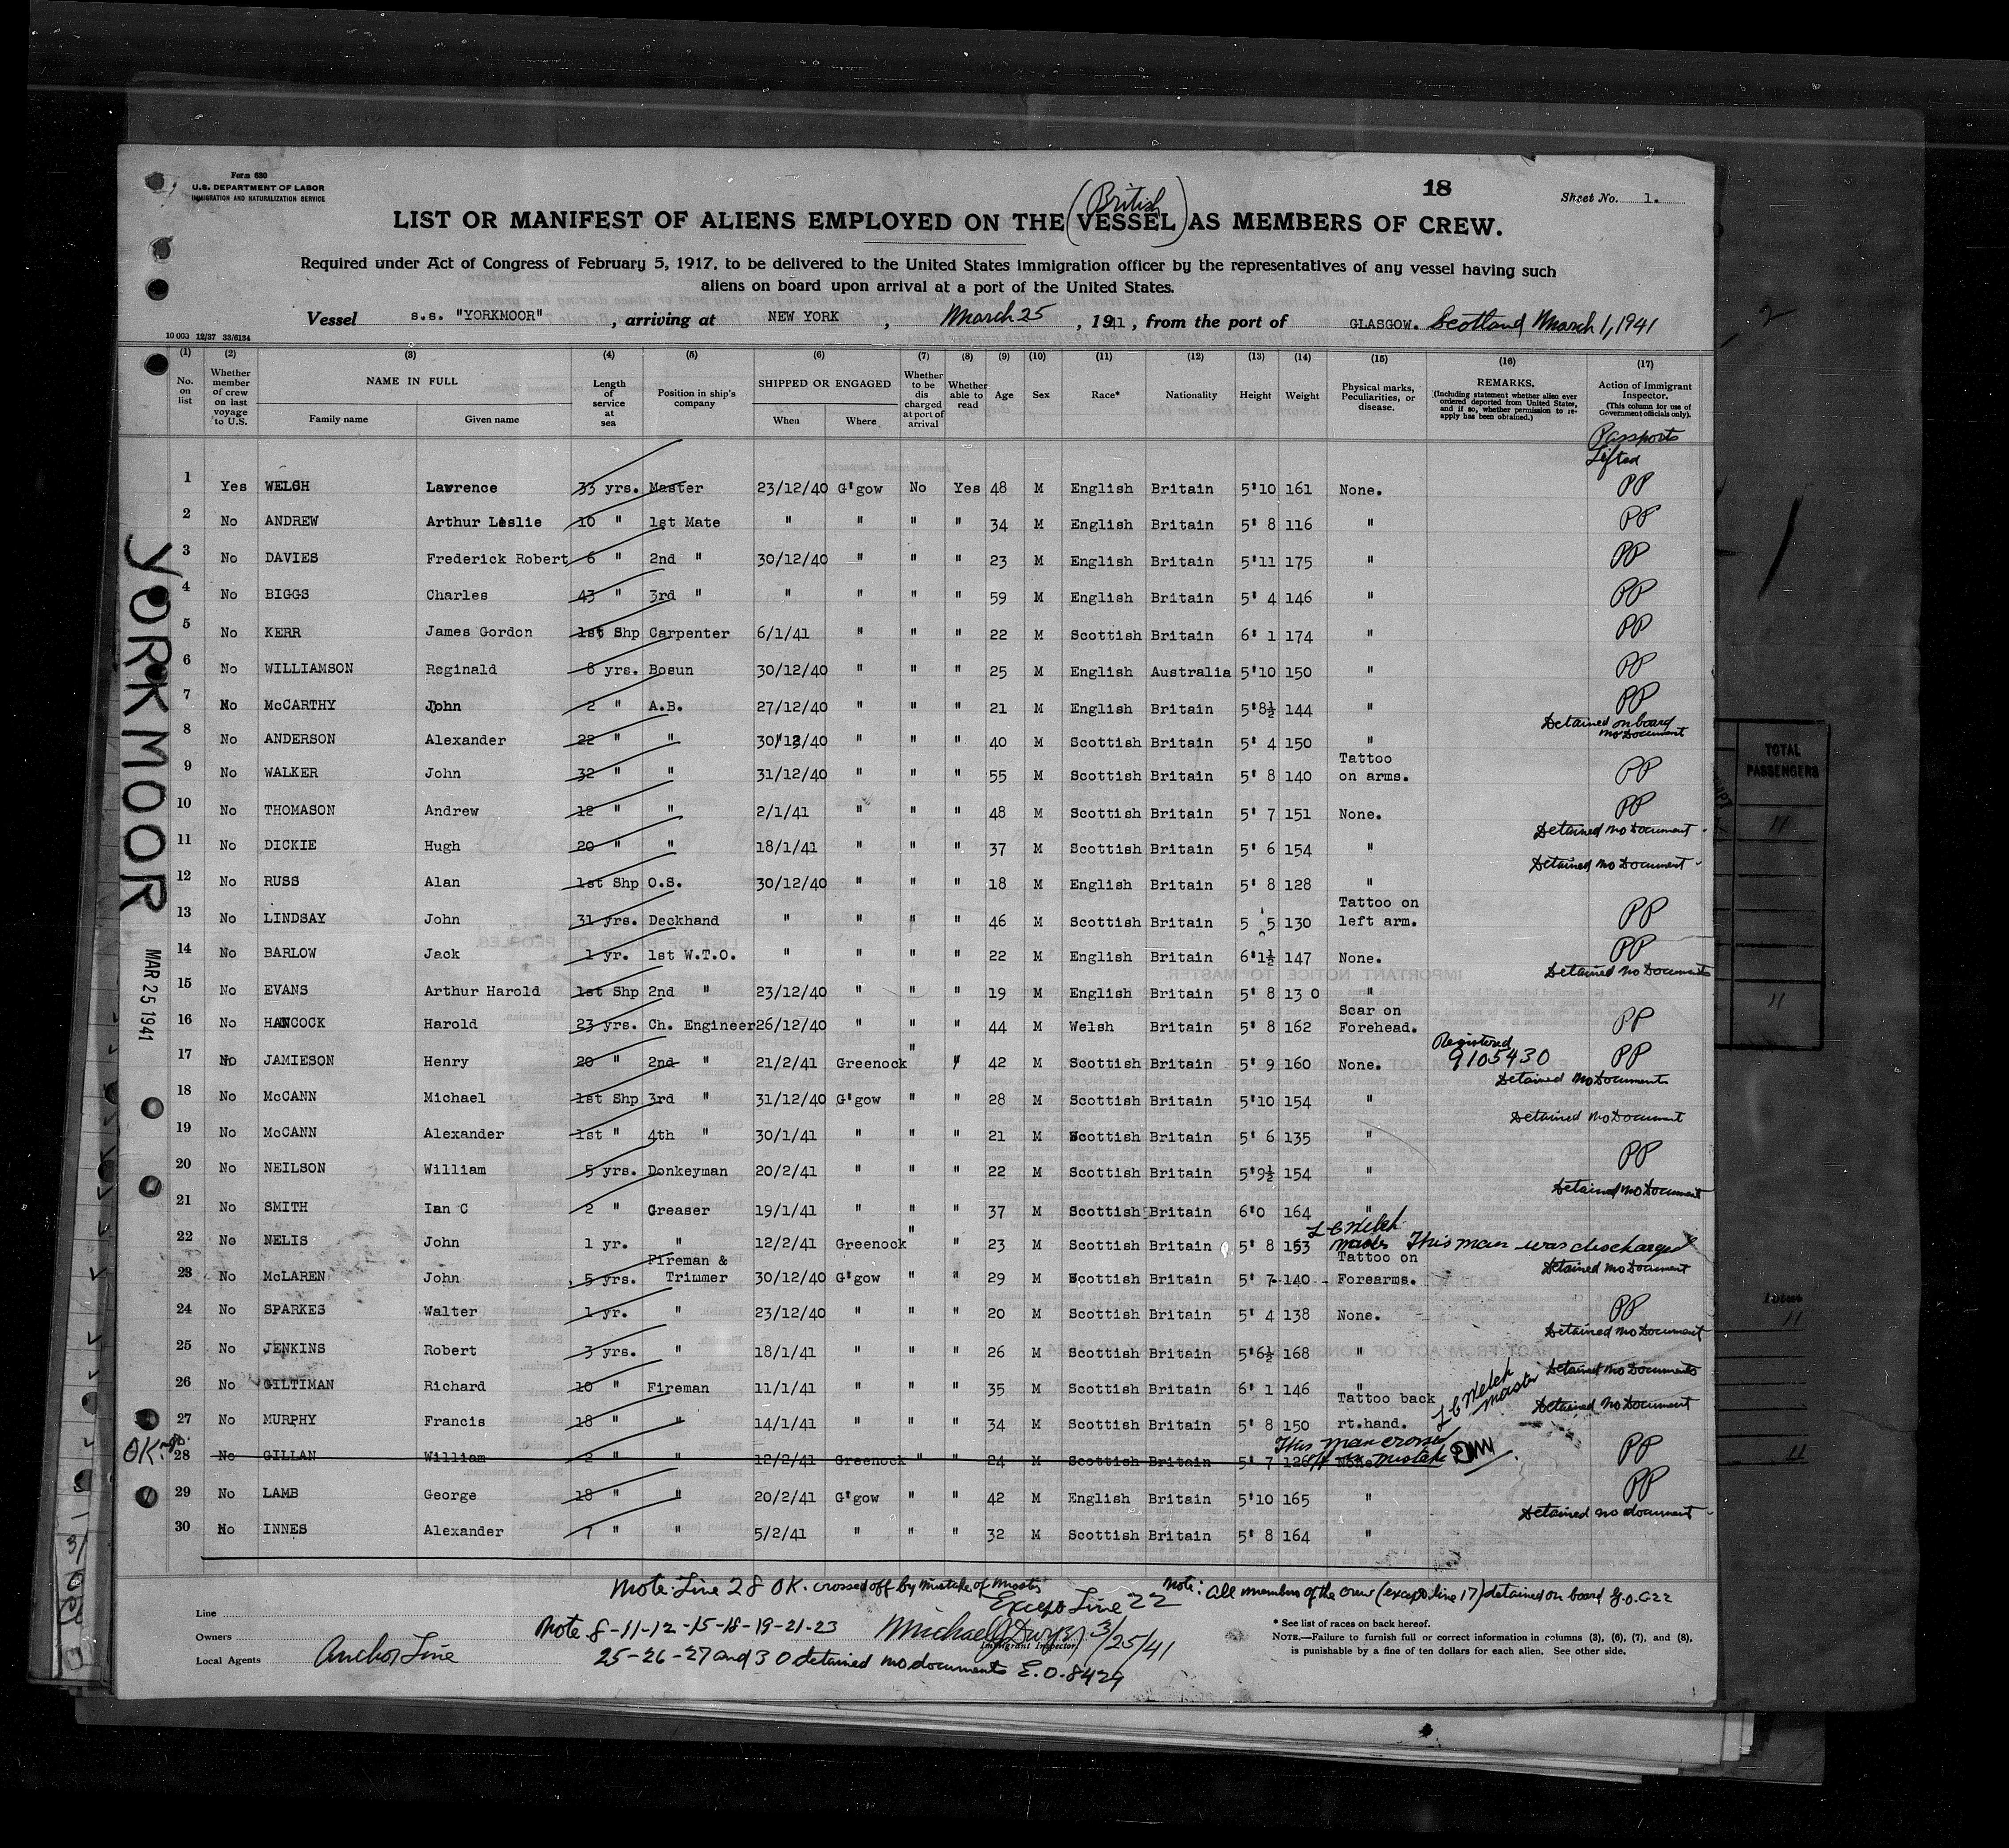 Form 680
U.S. DEPARTMENT OF LABOR
IMMIGRATION AND NATURALIZATION SERVICE
18
Sheet No. 1.
(British)
LIST OR MANIFEST OF ALIENS EMPLOYED ON THE VESSEL AS MEMBERS OF CREW.
Required under Act of Congress of February 5, 1917, to be delivered to the United States immigration officer by the representatives of any vessel having such
aliens on board upon arrival at a port of the United States.
Vessel s.s. "YORKMOOR", arriving at NEW YORK, March 25, 1941, from the port of GLASGOW. Scotland March 1, 1941
10 003 12/37 33/6134
(1) (2) (3) (4) (5) (6) (7) (8) (9) (10) (11) (12) (13) (14) (15) (16) (17)
No. on list
Whether member of crew on last voyage to U.S.
NAME IN FULL
Family name Given name
Length of service at sea
Position in ship's company
SHIPPED OR ENGAGED
When Where
Whether to be dis charged at port of arrival
Whether able to read
Age
Sex
Race*
Nationality
Height
Weight
Physical marks, Peculiarities, or disease.
REMARKS.
(Including statement whether alien ever ordered deported from United States, and if so, whether permission to re-apply has been obtained.)
Action of Immigrant Inspector.
(This column for use of Government officials only).
Passports Lifted
1 Yes WELCH Lawrence 33 yrs. Master 23/12/40 G'gow No Yes 48 M English Britain 5'10 161 None. PP
2 No ANDREW Arthur Leslie 10 " 1st Mate " " " " 34 M English Britain 5' 8 116 " PP
3 No DAVIES Frederick Robert 6 " 2nd " 30/12/40 " " " 23 M English Britain 5'11 175 " PP
4 No BIGGS Charles 43 " 3rd " " " " " 59 M English Britain 5' 4 146 " PP
5 No KERR James Gordon 1st Shp Carpenter 6/1/41 " " " 22 M Scottish Britain 6' 1 174 " PP
6 No WILLIAMSON Reginald 8 yrs. Bosun 30/12/40 " " " 25 M English Australia 5'10 150 " PP
7 No McCARTHY John 2 " A.B. 27/12/40 " " " 21 M English Britain 5'8½ 144 " PP
Detained on board no Document
8 No ANDERSON Alexander 22 " " 30/12/40 " " " 40 M Scottish Britain 5' 4 150 "
9 No WALKER John 32 " " 31/12/40 " " " 55 M Scottish Britain 5' 8 140 Tattoo on arms. PP
10 No THOMASON Andrew 12 " " 2/1/41 " " " 48 M Scottish Britain 5' 7 151 None. PP
Detained No Document
11 No DICKIE Hugh 20 " " 18/1/41 " " " 37 M Scottish Britain 5' 6 154 "
Detained No Document
12 No RUSS Alan 1st Shp O.S. 30/12/40 " " " 18 M English Britain 5' 8 128 "
13 No LINDSAY John 31 yrs. Deckhand " " " " 46 M Scottish Britain 5 ' 5 130 Tattoo on left arm. PP
14 No BARLOW Jack 1 yr. 1st W.T.O. " " " " 22 M English Britain 6'1½ 147 None. PP
Detained No Documents
15 No EVANS Arthur Harold 1st Shp 2nd " 23/12/40 " " " 19 M English Britain 5' 8 13 0 "
16 No HANCOCK Harold 23 yrs. Ch. Engineer 26/12/40 " " " 44 M Welsh Britain 5' 8 162 Scar on Forehead. PP
17 No JAMIESON Henry 20 " 2nd " 21/2/41 Greenock " " 42 M Scottish Britain 5' 9 160 None. Registered 9105430 PP
Detained No Documents
18 No McCANN Michael 1st Shp 3rd " 31/12/40 G'gow " " 28 M Scottish Britain 5'10 154 "
Detained No Document
19 No McCANN Alexander 1st " 4th " 30/1/41 " " " 21 M Scottish Britain 5' 6 135 "
20 No NEILSON William 5 yrs. Donkeyman 20/2/41 " " " 22 M Scottish Britain 5'9½ 154 " PP
Detained No Document
21 No SMITH Ian C 2 " Greaser 19/1/41 " " " 37 M Scottish Britain 6'0 164 "
22 No NELIS John 1 yr. " 12/2/41 Greenock " " 23 M Scottish Britain 5' 8 153 L C Welch Master This man was discharged
Detained No Document
23 No McLAREN John 5 yrs. Fireman & Trimmer 30/12/40 G'gow " " 29 M Scottish Britain 5' 7 140 Tattoo on Forearms.
24 No SPARKES Walter 1 yr. " 23/12/40 " " " 20 M Scottish Britain 5' 4 138 None. PP
Detained No Document
25 No JENKINS Robert 3 yrs. " 18/1/41 " " " 26 M Scottish Britain 5'6½ 168 "
Detained No Documents
26 No GILTIMAN Richard 10 " Fireman 11/1/41 " " " 35 M Scottish Britain 6' 1 146 "
L C Welch Master
Detained No Document
27 No MURPHY Francis 18 " " 14/1/41 " " " 34 M Scottish Britain 5' 8 150 Tattoo back rt.hand.
OK
This man crossed off in mistake
28 No GILLAN William 2 " " 12/2/41 Greenock " " 24 M Scottish Britain 5' 7 126 None PP
29 No LAMB George 18 " " 20/2/41 G'gow " " 42 M English Britain 5'10 165 " PP
Detained no document
30 No INNES Alexander 7 " " 5/2/41 " " " 32 M Scottish Britain 5' 8 164 "
YORKMOOR
MAR 25 1941
Note: Line 28 OK. crossed off by mistake of Master
Note: All members of the crew (except line 17) detained on board
Except Line 22
Line
Owners
Local Agents Anchor Line
Note 8-11-12-15-18-19-21-23
25-26-27 and 30 detained no documents E.O. 8429
Michael J Dwyer 3/25/41
Immigrant Inspector
* See list of races on back hereof.
NOTE.—Failure to furnish full or correct information in columns (3), (6), (7), and (8),
is punishable by a fine of ten dollars for each alien. See other side.
TOTAL PASSENGERS
11
11
11
11
2